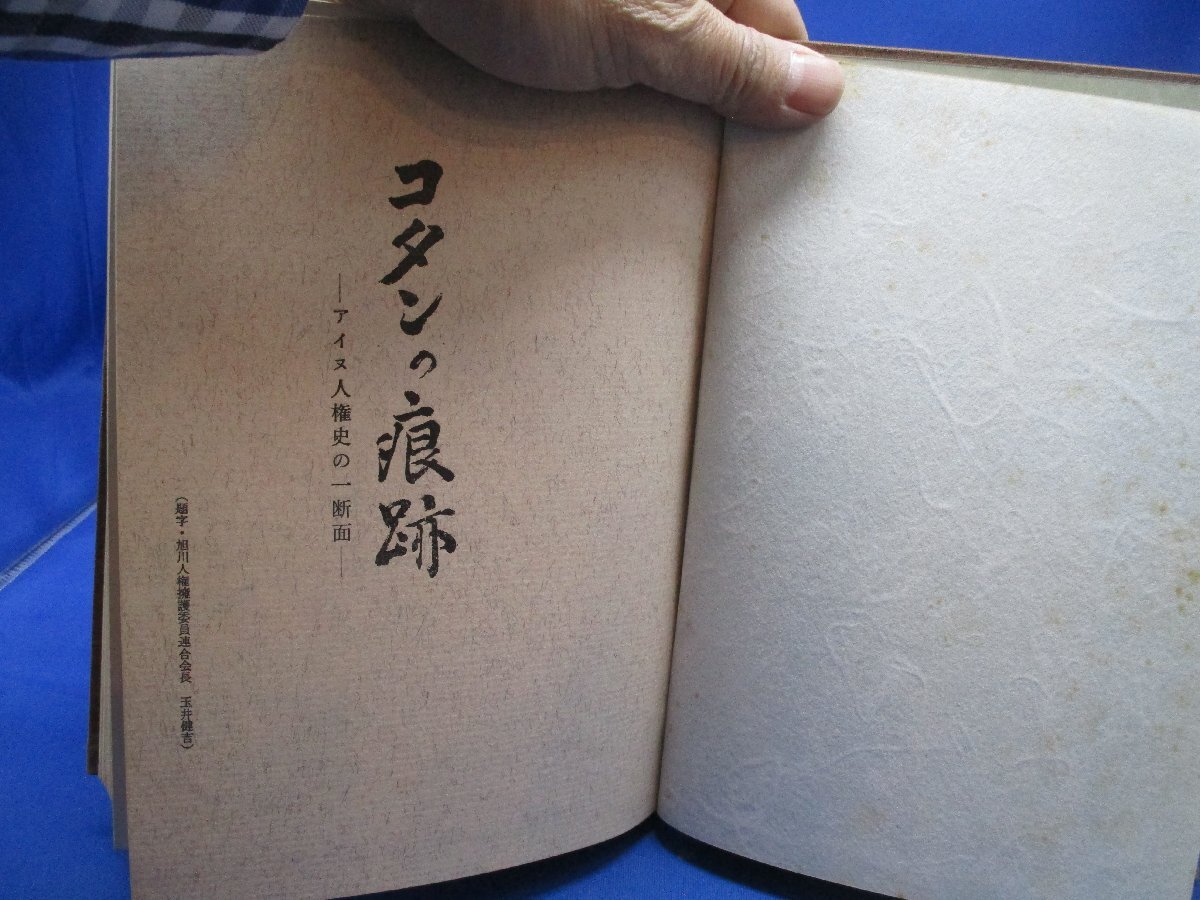 コタンの痕跡
―アイヌ人権史の一断面―
(題字・旭川人権擁護委員連合会長 玉井健吉)